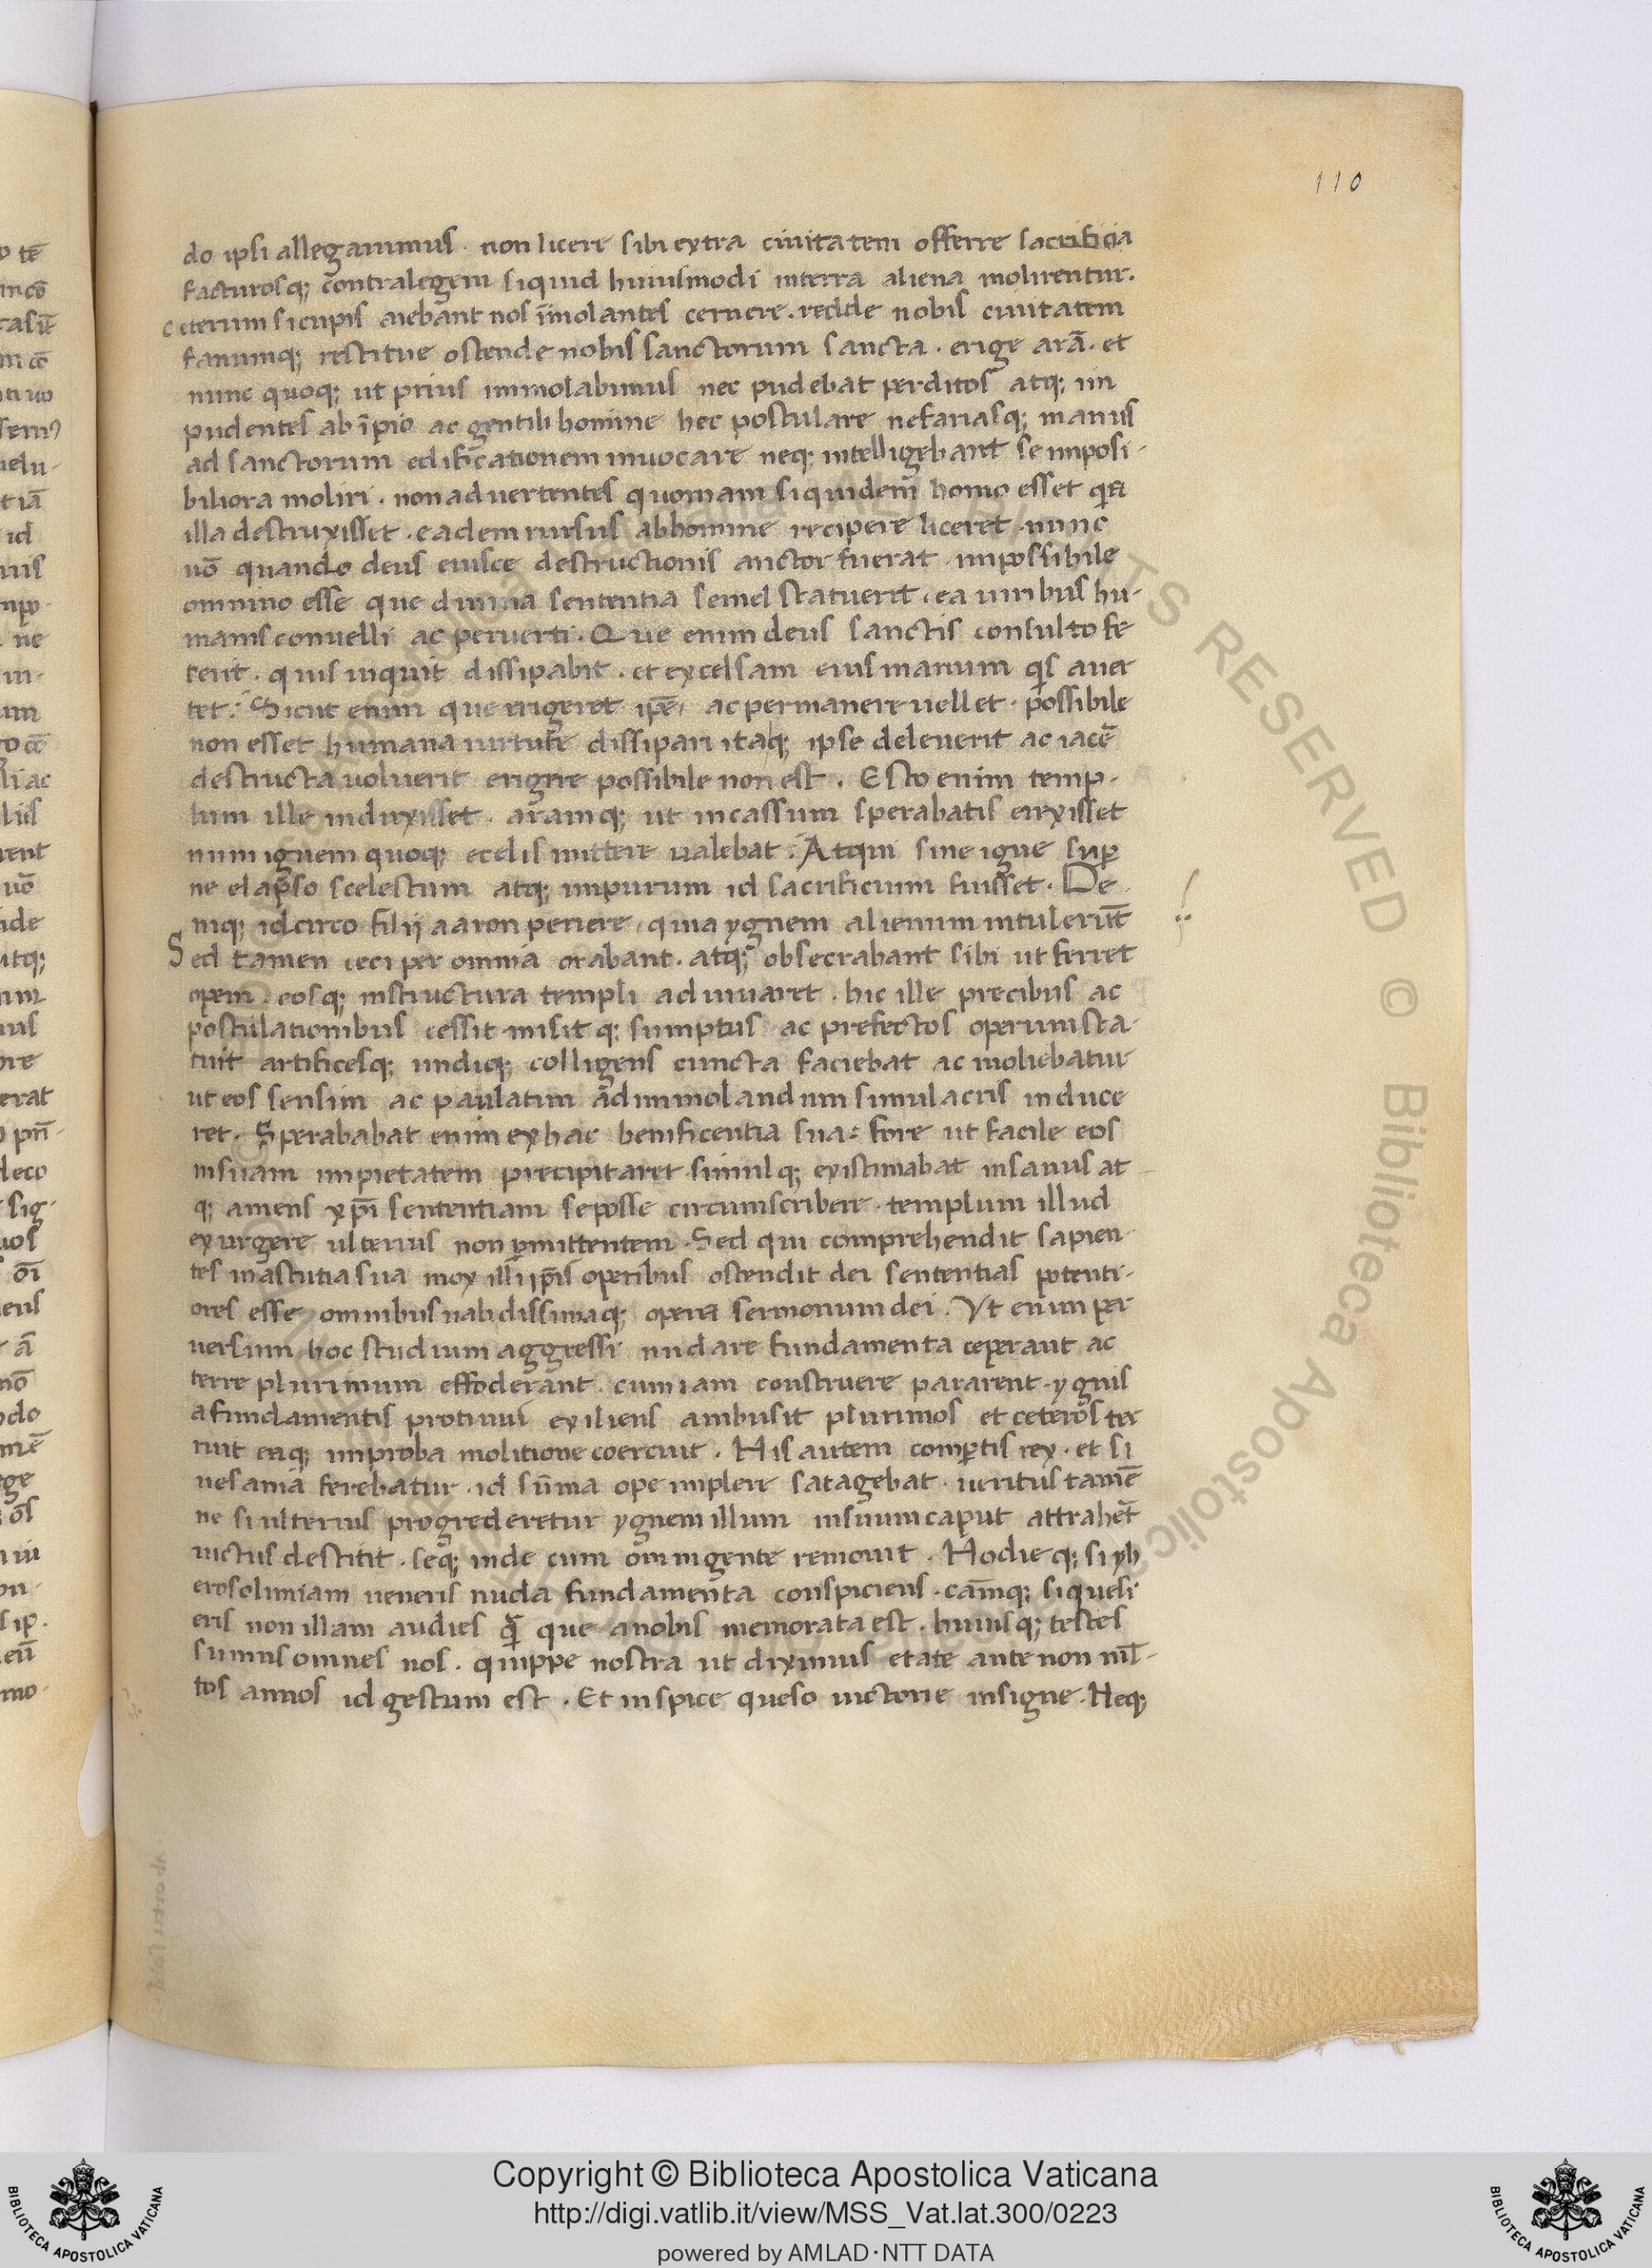 110
do ipsi allegauimus · non licere sibi extra ciuitatem offerre sacrificia
facturosq; contra legem siquid huiusmodi in terra aliena molirentur.
ceterum si cupis aiebant nos īmolantes cernere . redde nobis ciuitatem
fanumq; restitue ostende nobis sanctorum sancta . erige arā . et
nunc quoq; ut prius immolabimus nec pudebat perditos atq; im
pudentes ab īpio ac gentili homine hec postulare nefariasq; manus
ad sanctorum edificationem inuocare neq; intelligebant se imposi-
biliora moliri . non aduertentes quoniam siquidem homo esset qui
illa destruxisset . eadem rursus ab homine recipere liceret . nunc
uō quando deus eiusce destructionis auctor fuerat . impossibile
omnino esse que diuina sententia semel statuerit . ea uiribus hu-
manis conuelli ac peruerti . Que enim deus sanctis consulto fe
rerit . quis inquit dissipabit . et excelsam eius manum qis auer
tet . Sicut enim que erigeret ipē , ac permanere uellet . possibile
non esset humana uirtute dissipari itaq; ipse deleuerit ac iacē
destructa uoluerit erigere possibile non est . Esto enim temp-
lum ille induxisset . aramq; ut incassum sperabatis erexisset
num ignem quoq; e celis mittere ualebat . Atqui sine igne sup
ne elapso scelestum atq; impurum id sacrificium fuisset . De
niq; idcirco filij aaron periere , quia ygnem alienum intulerūt
Sed tamen ceci per omnia orabant . atq; obsecrabant sibi ut ferret
opem . eosq; in structura templi adiuuaret . hic ille precibus ac
postulationibus cessit misit q; sumptus ac prefectos operum sta-
tuit artificesq; undiq; colligens cuncta faciebat ac moliebatur
ut eos sensim ac paulatim ad immolandum simulacris induce
ret . Sperababat enim ex hac benificentia sua fore ut facile eos
in suam impietatem precipitaret simulq; existimabat insanus at
q; amens xpī sententiam se posse circumscribere . templum illud
exurgere ulterius non pmittentem . Sed qui comprehendit sapien-
tes in astutia sua mox illi ipīs operibus ostendit dei sententias potenti-
ores esse omnibus ualidissimaq; opera sermonum dei . Vt enim per
uersum hoc studium aggressi nudare fundamenta ceperant ac
terre plurimum effoderant . cum iam construere pararent . ygnis
a fundamentis protinus exiliens ambusit plurimos et ceteros ter
ruit eaq; improba molitione coercuit . His autem compertis rex . et si
uesania ferebatur . id sūma ope implere satagebat . ueritus tamē
ne si ulterius progrederetur ygnem illum in suum caput attrahēt
uictus destitit . seq; inde cum omni gente remouit . Hodieq; si yh
erosolimiam ueneris nuda fundamenta conspiciens . camq; si quesi
eris non illam audies q̄ que a nobis memorata est . huiusq; testes
sumus omnes nos . quippe nostra ut diximus etate ante non ml̄-
tos annos id gestum est . Et inspice queso uictorie insigne . Neq;
Copyright © Biblioteca Apostolica Vaticana
http://digi.vatlib.it/view/MSS_Vat.lat.300/0223
powered by AMLAD·NTT DATA
BIBLIOTECA APOSTOLICA VATICANA
BIBLIOTECA APOSTOLICA VATICANA